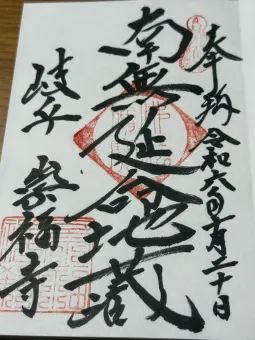 奉拝 令和六年一月二十日
南無延命地蔵
岐阜 崇福寺